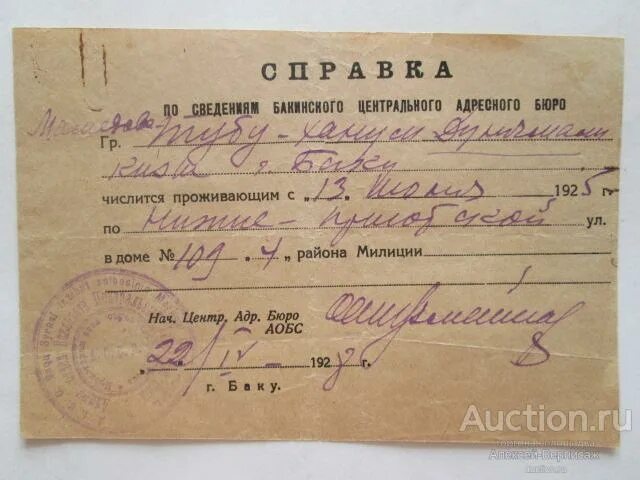 СПРАВКА
ПО СВЕДЕНИЯМ БАКИНСКОГО ЦЕНТРАЛЬНОГО АДРЕСНОГО БЮРО
Гр. Мамедова Тубу-ханум
кизи г. Баку
числится проживающим с „13 Июля 1925 г.
по Нижне-Приютской ул.
в доме № 109. 4 района Милиции
Нач. Центр. Адр. Бюро
АОБС
„22/IV 1928 г.
г. Баку.
Auction.ru
торговая площадка
Алексей-Вернисаж
auction.ru